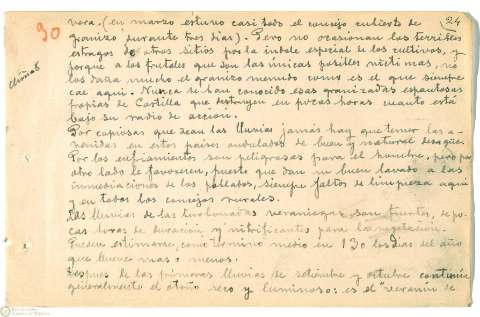 24
90
voca. (en marzo estuvo casi todo el concejo cubierto de
granizo durante tres dias). Pero no ocasionan los terribles
estragos de otros sitios por la indole especial de los cultivos, y
porque a los frutales que son las únicas posibles victimas, no
les daña mucho el granizo menudo como es el que siempre
cae aqui. Nunca se han conocido esas granizadas espantosas
propias de Castilla que destruyen en pocas horas cuanto está
bajo su radio de acción.
Por copiosas que sean las lluvias jamás hay que temer las a-
venidas en estos paises ondulados de buen y natural desagüe.
Por los enfriamientos son peligrosas para el hombre, pero por
otro lado le favorecen, puesto que dan un buen lavado a las
inmediaciones de los poblados, siempre faltos de limpieza aqui
y en todos los concejos rurales.
Las lluvias de las turbonadas veraniegas son fuertes, de po-
cas horas de duración y nitrificantes para la vegetacion.
Pueden estimarse, como término medio en 130 los dias del año
que llueve mas o menos.
Despues de las primeras lluvias de setiembre y octubre continúa
generalmente el otoño seco y luminoso: es el "veranin de